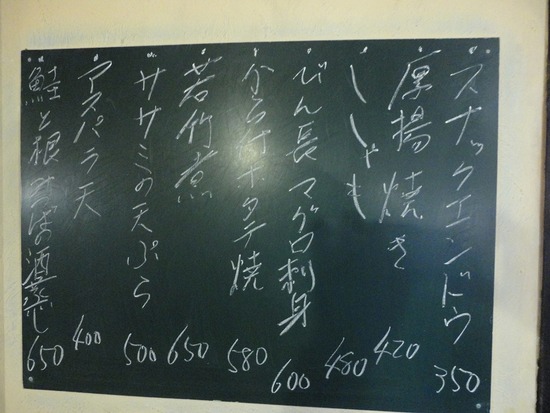 スナックエンドウ 350
厚揚焼き 420
ししゃも 480
びん長マグロ刺身 600
から付ホタテ焼 580
若竹煮 650
ササミの天ぷら 500
アスパラ天 400
鮭と根みつばの酒蒸し 650